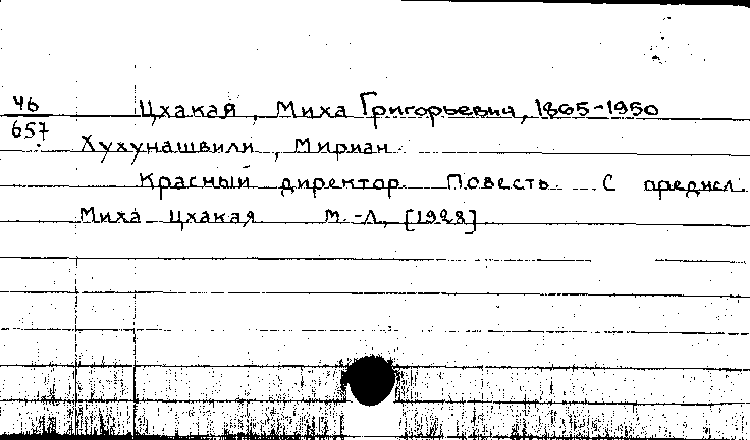 46 Цхакая, Миха Григорьевич, 1865-1950
657 Хухунашвили, Мириан.
Красный директор. Повесть. С предисл.
Миха Цхакая М.-Л., [1928]